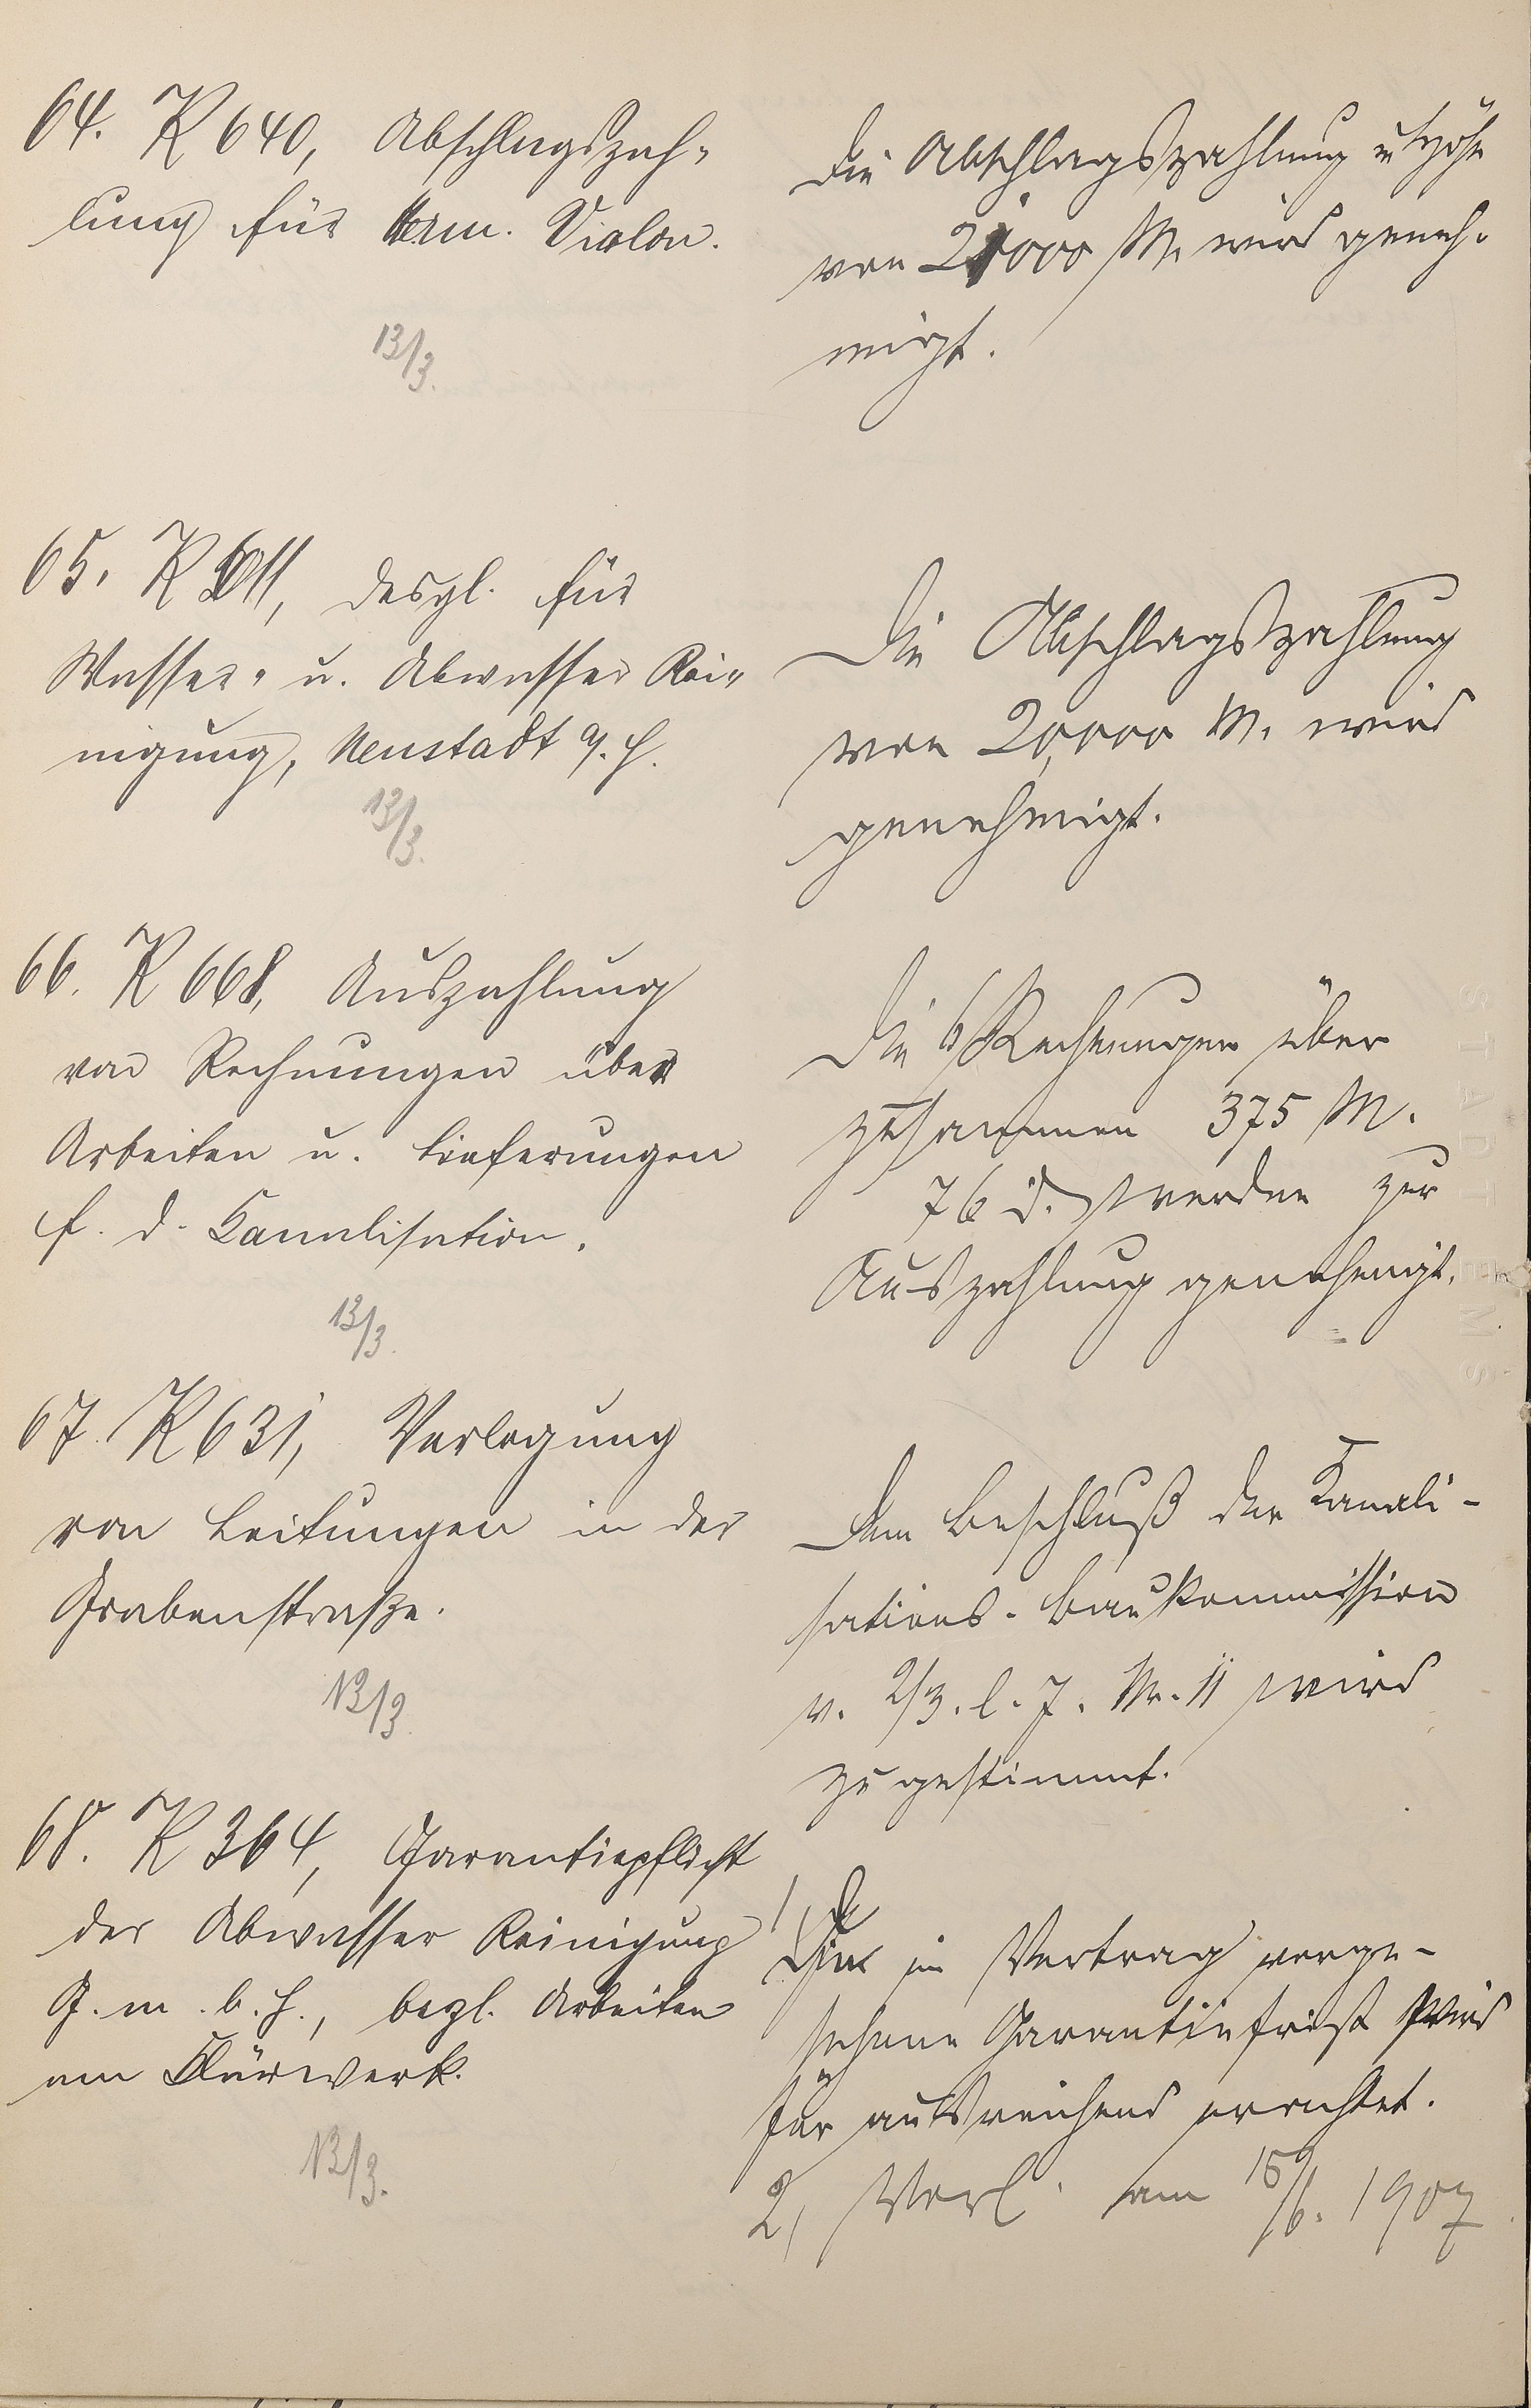 64. K 640, Abschlagszah-
lung für Herm. Violon.
13/3.
Die Abschlagszahlung in Höhe
von 21000 M. wird geneh-
migt.
65. K 611, desgl. für
Wasser- u. Abwasser Rei-
nigung, Neustadt a. H.
13/3.
Die Abschlagszahlung
von 20,000 M. wird
genehmigt.
66. K 668, Auszahlung
von Rechnungen über
Arbeiten u. Lieferungen
f. d. Kanalisation.
13/3.
Die 6 Rechnungen über
zusammen 375 M.
76 d. werden zur
Auszahlung genehmigt.
67. K 631, Verlegung
von Leitungen in der
Grabenstraße.
13/3.
Dem Beschluß der Kanali-
sations-Baukommission
v. 2/3. l. J. Nr. 11 wird
zugestimmt.
68. K 364, Garantiepflicht
der Abwasser Reinigung
G. m. b. H., bezl. Arbeiten
am Klärwerk.
13/3.
1, Die im Vertrag vorge-
sehene Garantiefrist wird
für ausreichend erachtet.
2, Vorl. am 15/6. 1907
STADT EMS